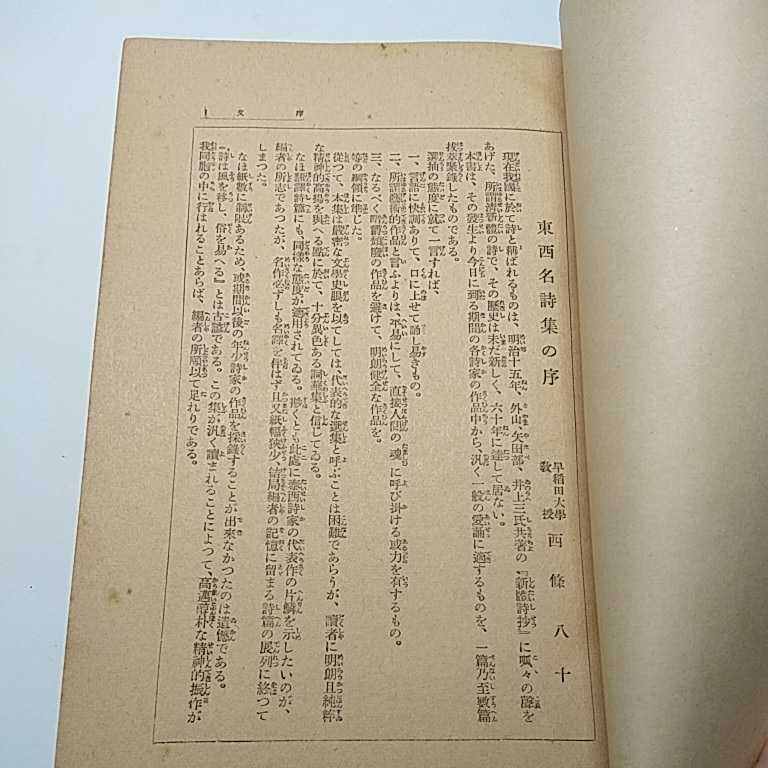 序文
東西名詩集の序
早稻田大學
教授
西條八十
現在我國に於て詩と稱ばれるものは、明治十五年、外山、矢田部、井上三氏共著の『新體詩抄』に呱々の聲を
あげた、所謂新體の詩で、その歷史は未だ新しく、六十年に達して居ない。
本書は、その發生より今日に到る期間の各詩家の作品中から、汎く一般の愛誦に適するものを、一篇乃至數篇
拔萃聚錄したものである。
選抽の態度に就て一言すれば、
一、言語に快調ありて、口に上せて誦し易きもの。
二、所謂藝術的作品と言ふよりは、平易にして、直接人間の魂に呼び掛ける或力を有するもの。
三、なるべく頽廢の作品を避けて、明朗健全な作品を。
等の綱領に準じた。
從つて、本集は嚴密な文學史眼を以てしては代表的な選集と呼ぶことは困難であらうが、讀者に明朗且純粹
な精神的高揚を與へる點に於て、十分異色ある詞華集と信じてゐる。
なほ飜譯詩篇にも、同樣な態度が適用されてゐる。尠くとも此處に泰西詩家の代表作の片鱗を示したいのが、
編者の所志であつたが、名作必ずしも名譯を伴はず且又紙幅狹少、結局編者の記憶に留まる詩篇の展列に終つて
しまつた。
なほ紙數に制限あるため、或期間以後の年少詩家の作品を採錄することが出來なかつたのは遺憾である。
『詩は風を移し、俗を易へる』とは古諺である。この集が汎く讀まれることによつて、高邁醇朴な精神的振作が
我同胞の中に行はれることあらば、編者の所願以て足れりである。